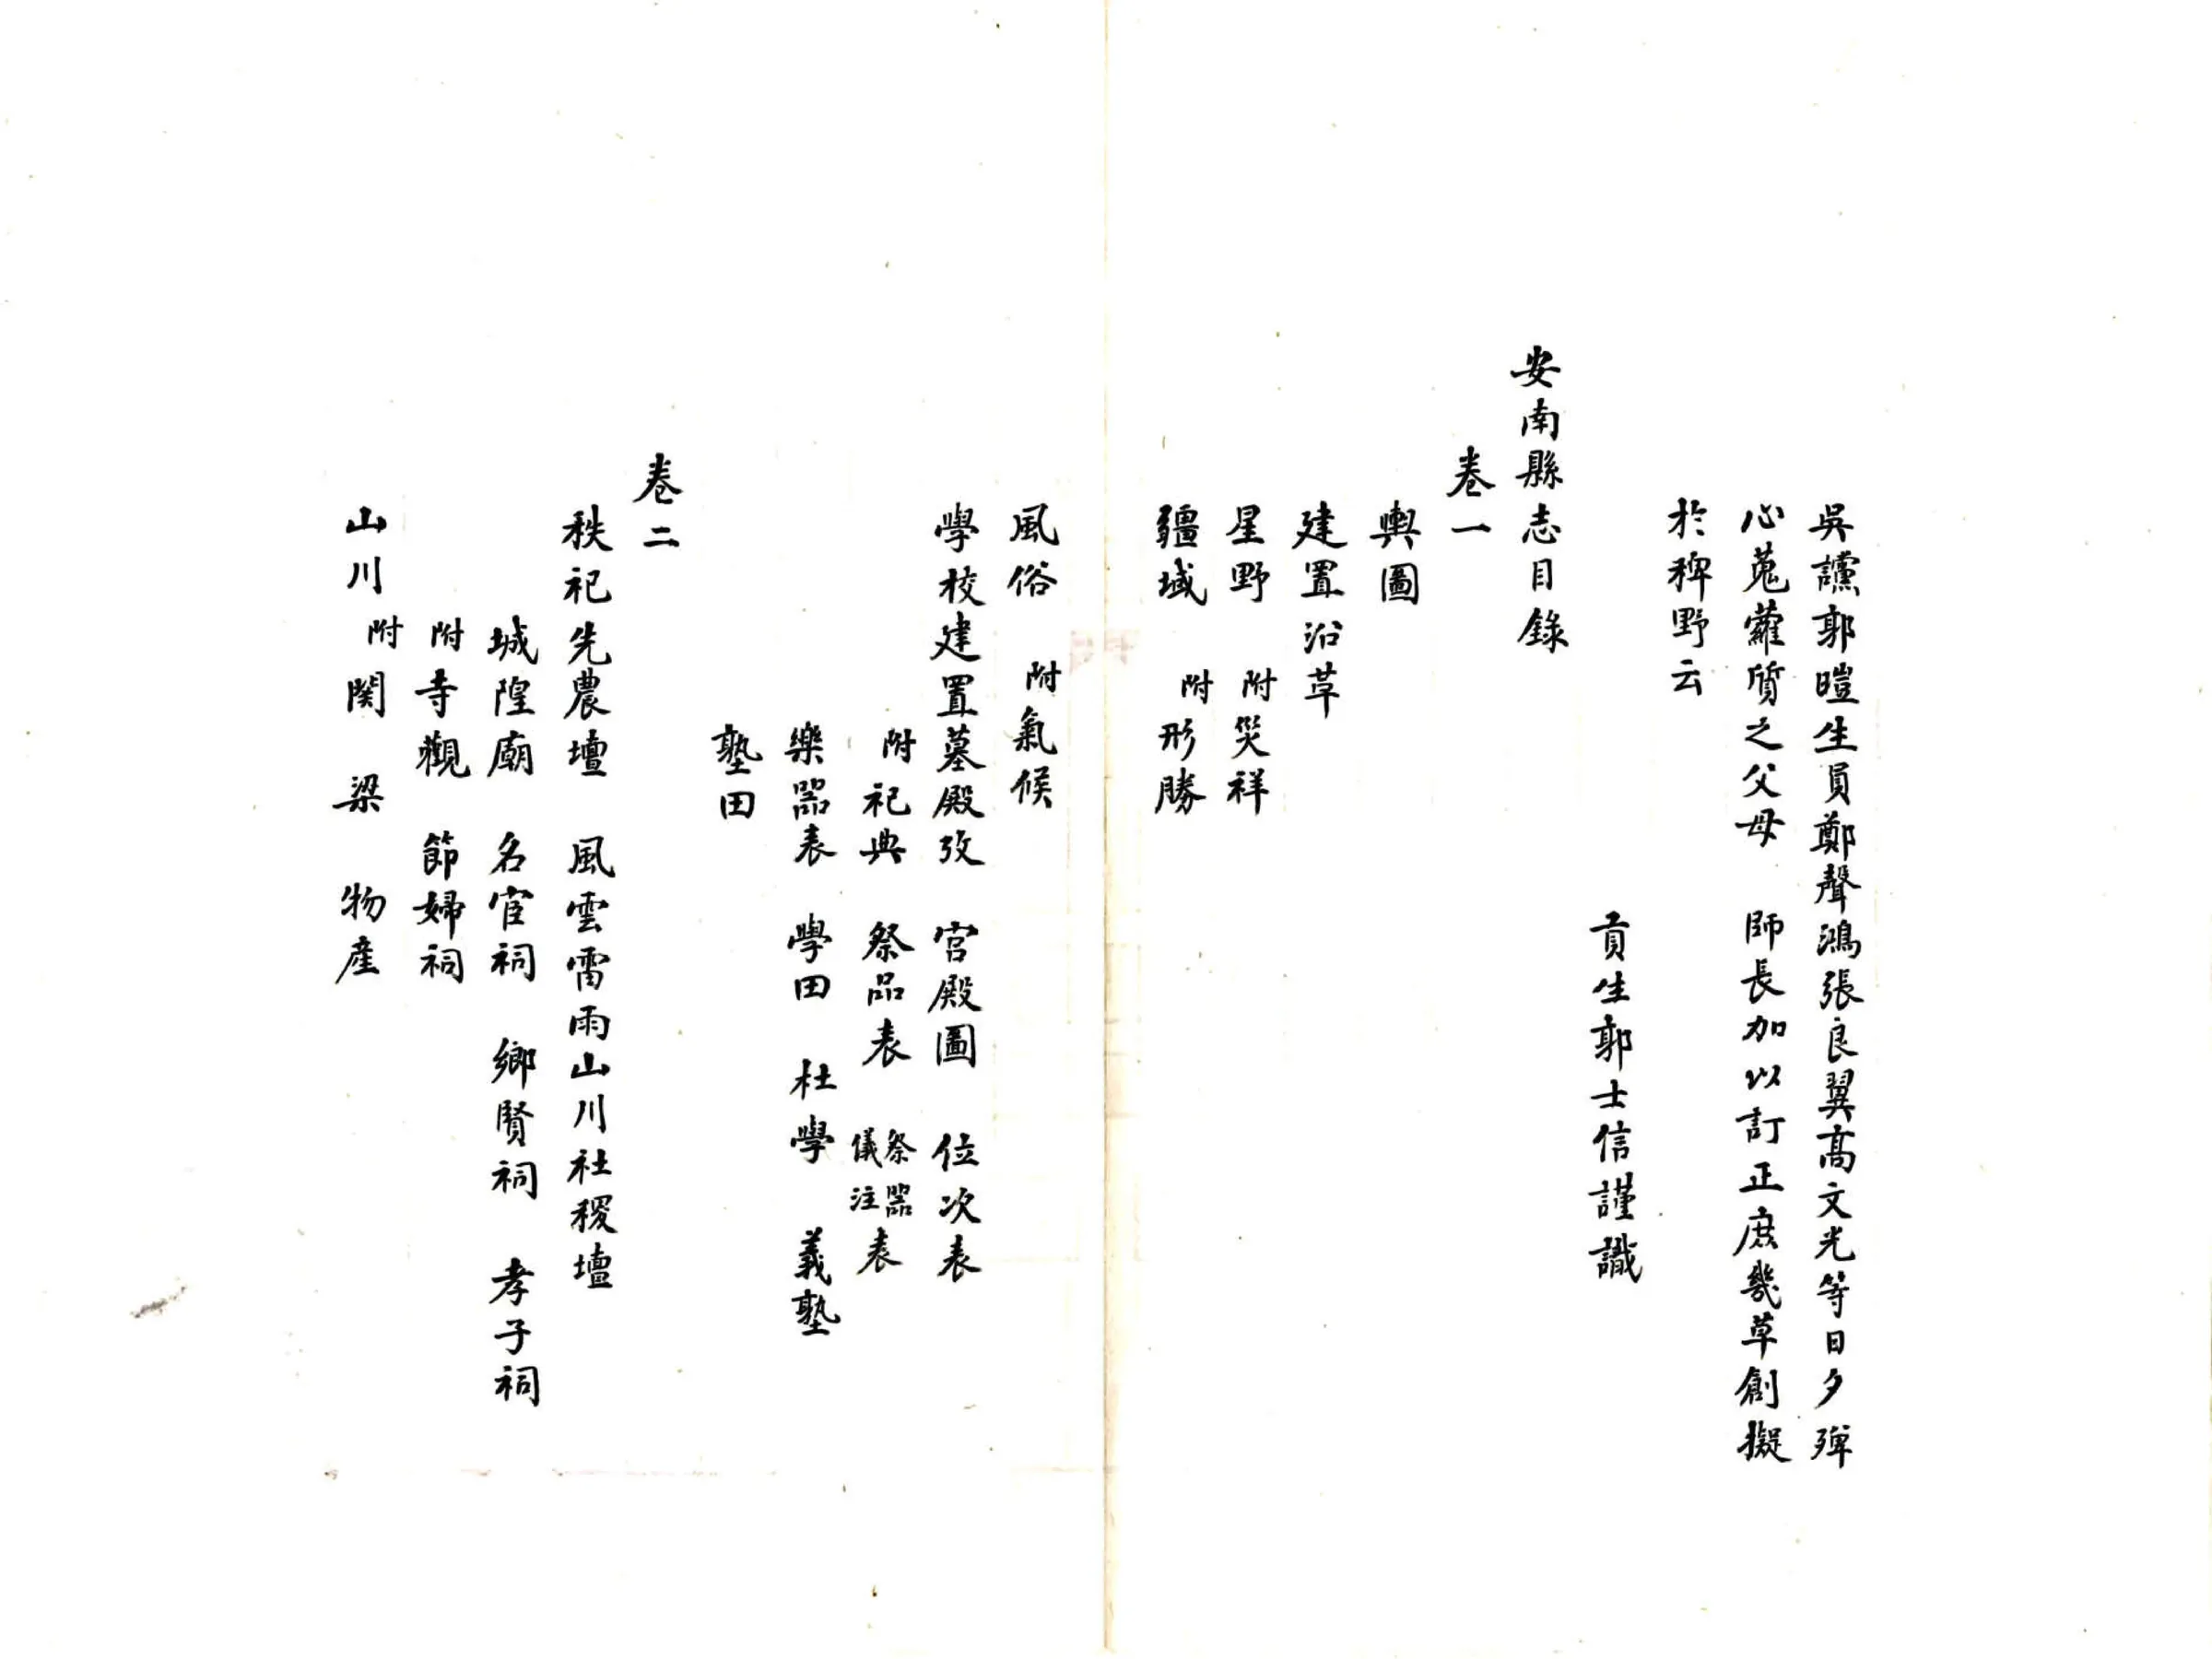 吳讜郭暟生員鄭聲鴻張良翼高文光等日夕殫
心蒐蘿質之父母　師長加以訂正庶幾草創擬
於稗野云
貢生郭士信謹識
安南縣志目錄
卷一
輿圖
建置沿革
星野　附災祥
疆域　附形勝
風俗　附氣候
學校建置墓殿攷　宮殿圖　位次表
附祀典　祭品表　祭器儀注表
樂器表　學田　杜學　義塾
塾田
卷二
秩祀先農壇　風雲雷雨山川社稷壇
城隍廟　名宦祠　鄉賢祠　孝子祠
附寺觀　節婦祠
山川　附関　梁　物産